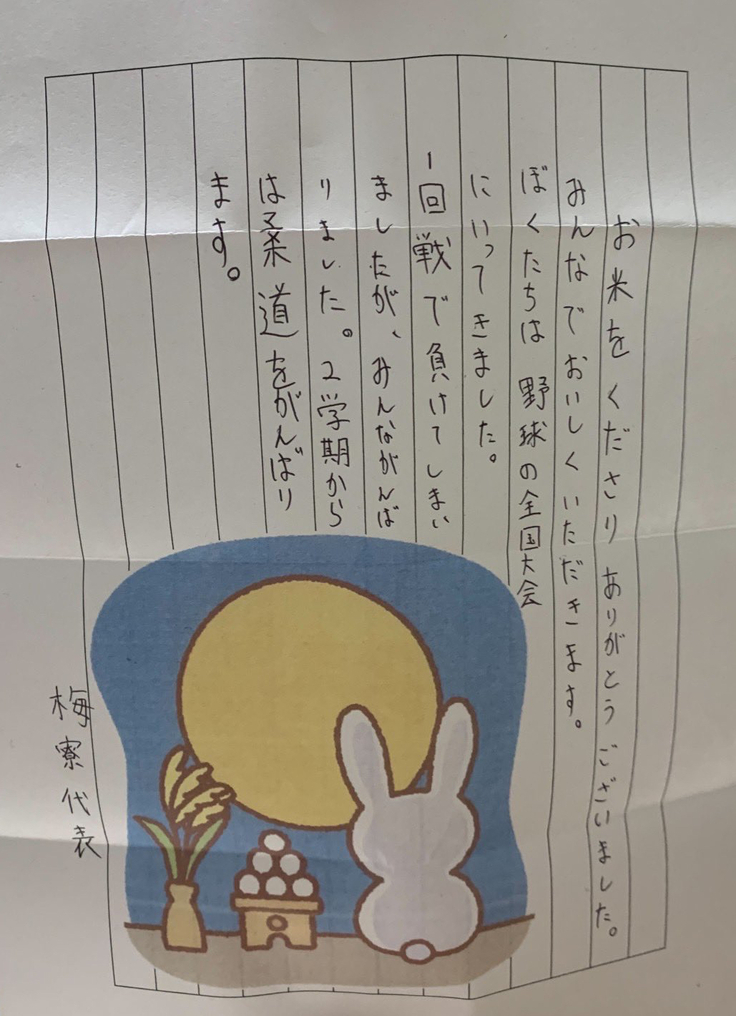 お米をくださりありがとうございました。
みんなでおいしくいただきます。
ぼくたちは野球の全国大会
にいってきました。
1回戦で負けてしまい
ましたが、みんながんば
りました。2学期から
は柔道をがんばり
ます。
梅寮代表